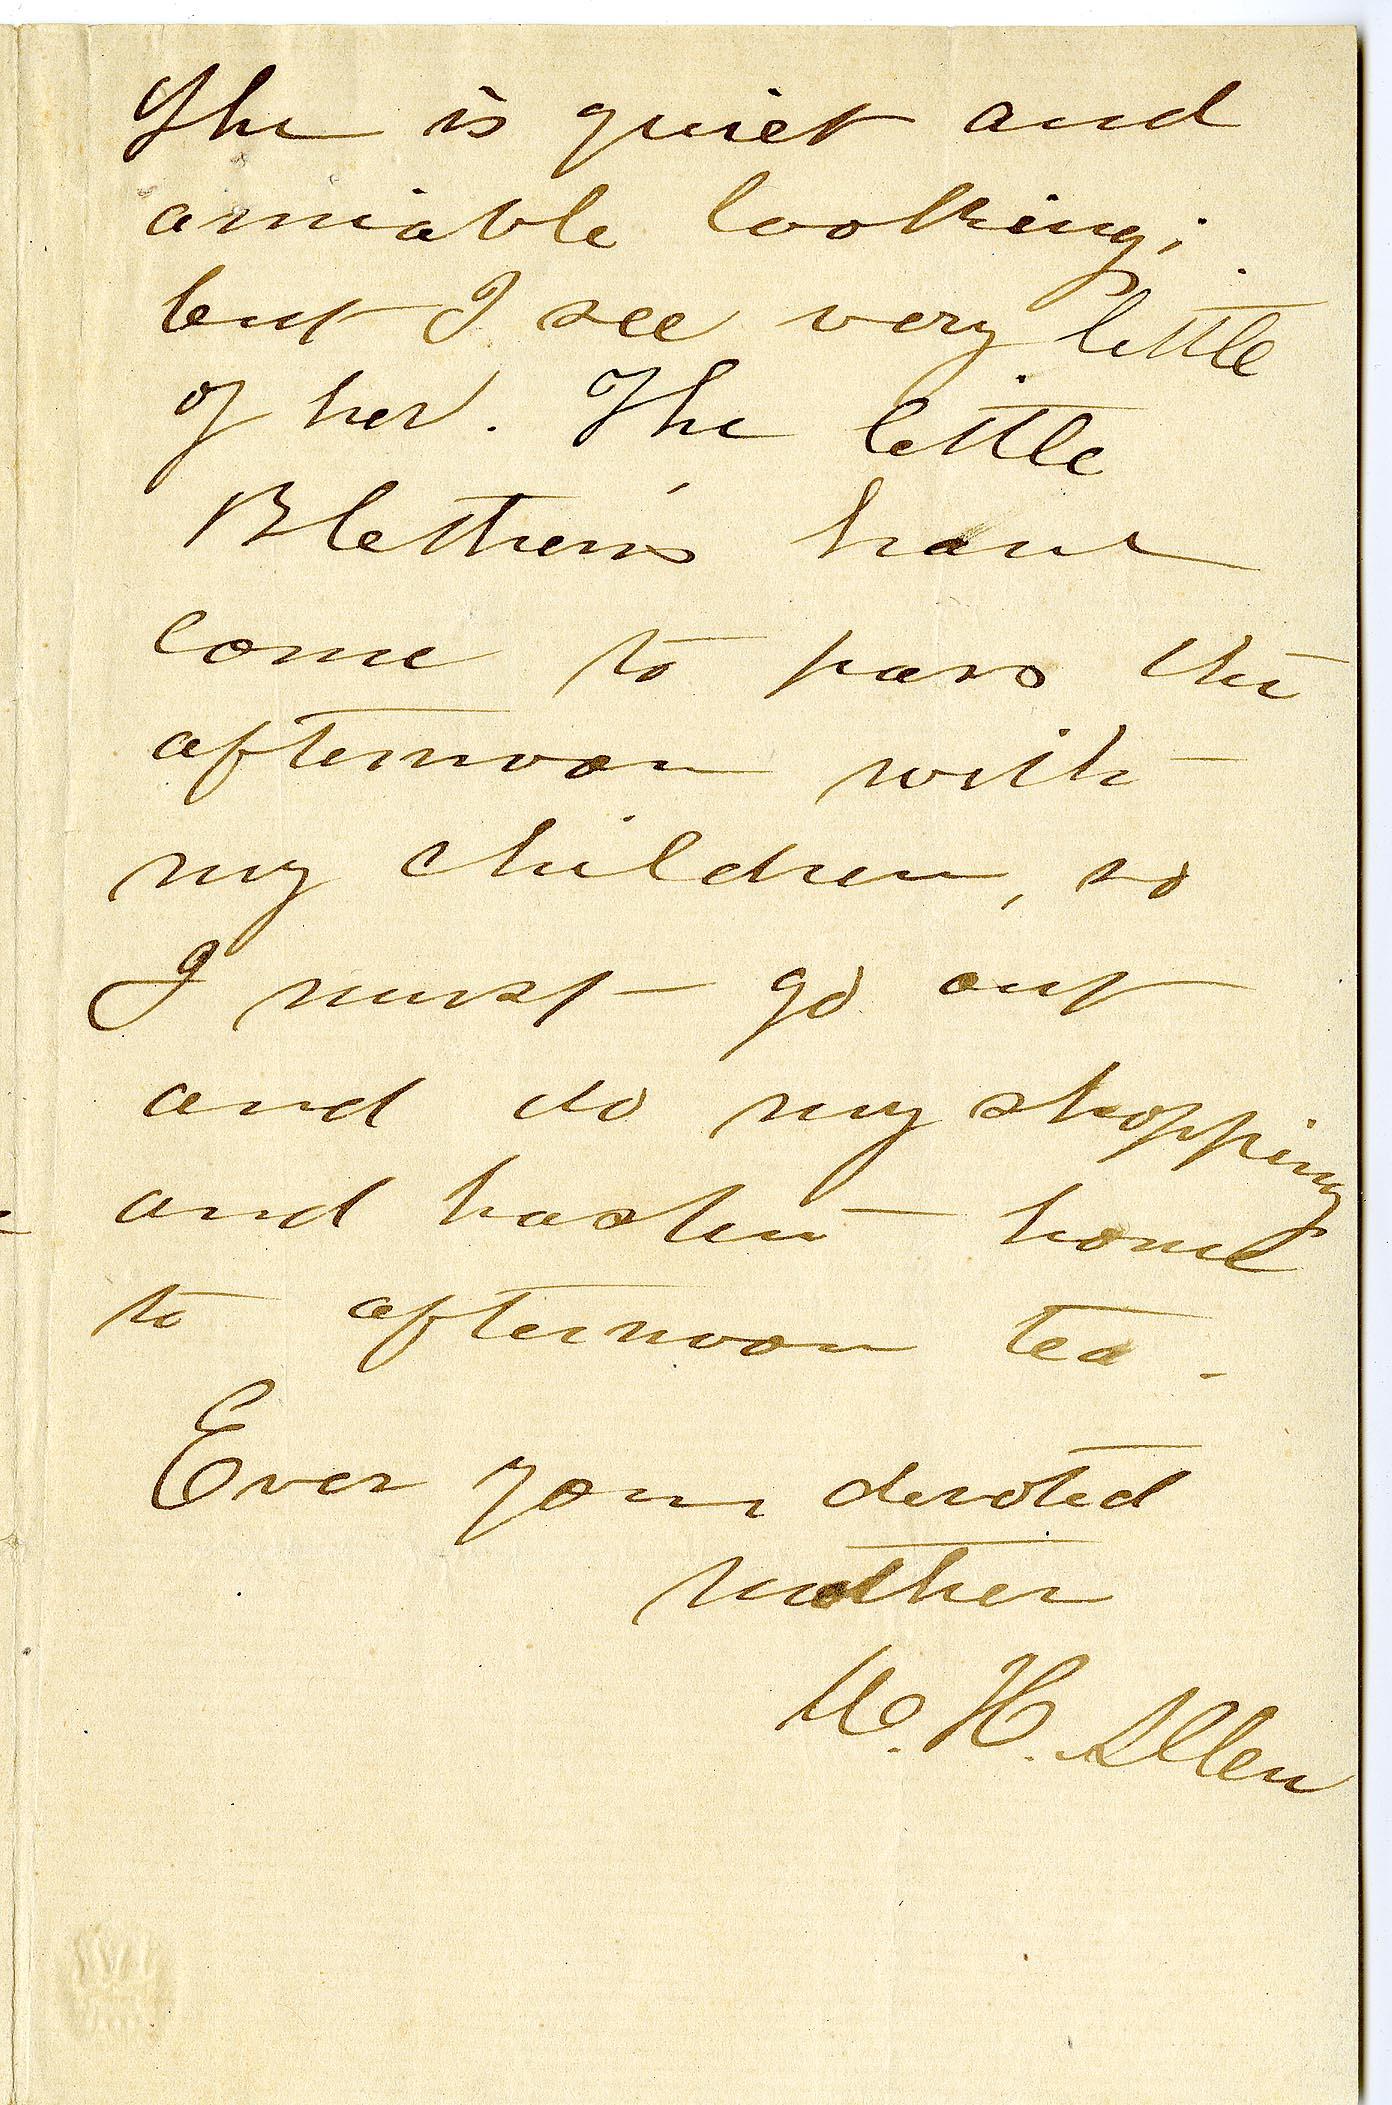 She is quiet and
amiable looking;
but I see very little
of her. The little
Blethens have
come to pass the
afternoon with
my children, so
I must go out
and do my shopping
and hasten home
to afternoon tea.
Ever your devoted
mother
W. H. Allen